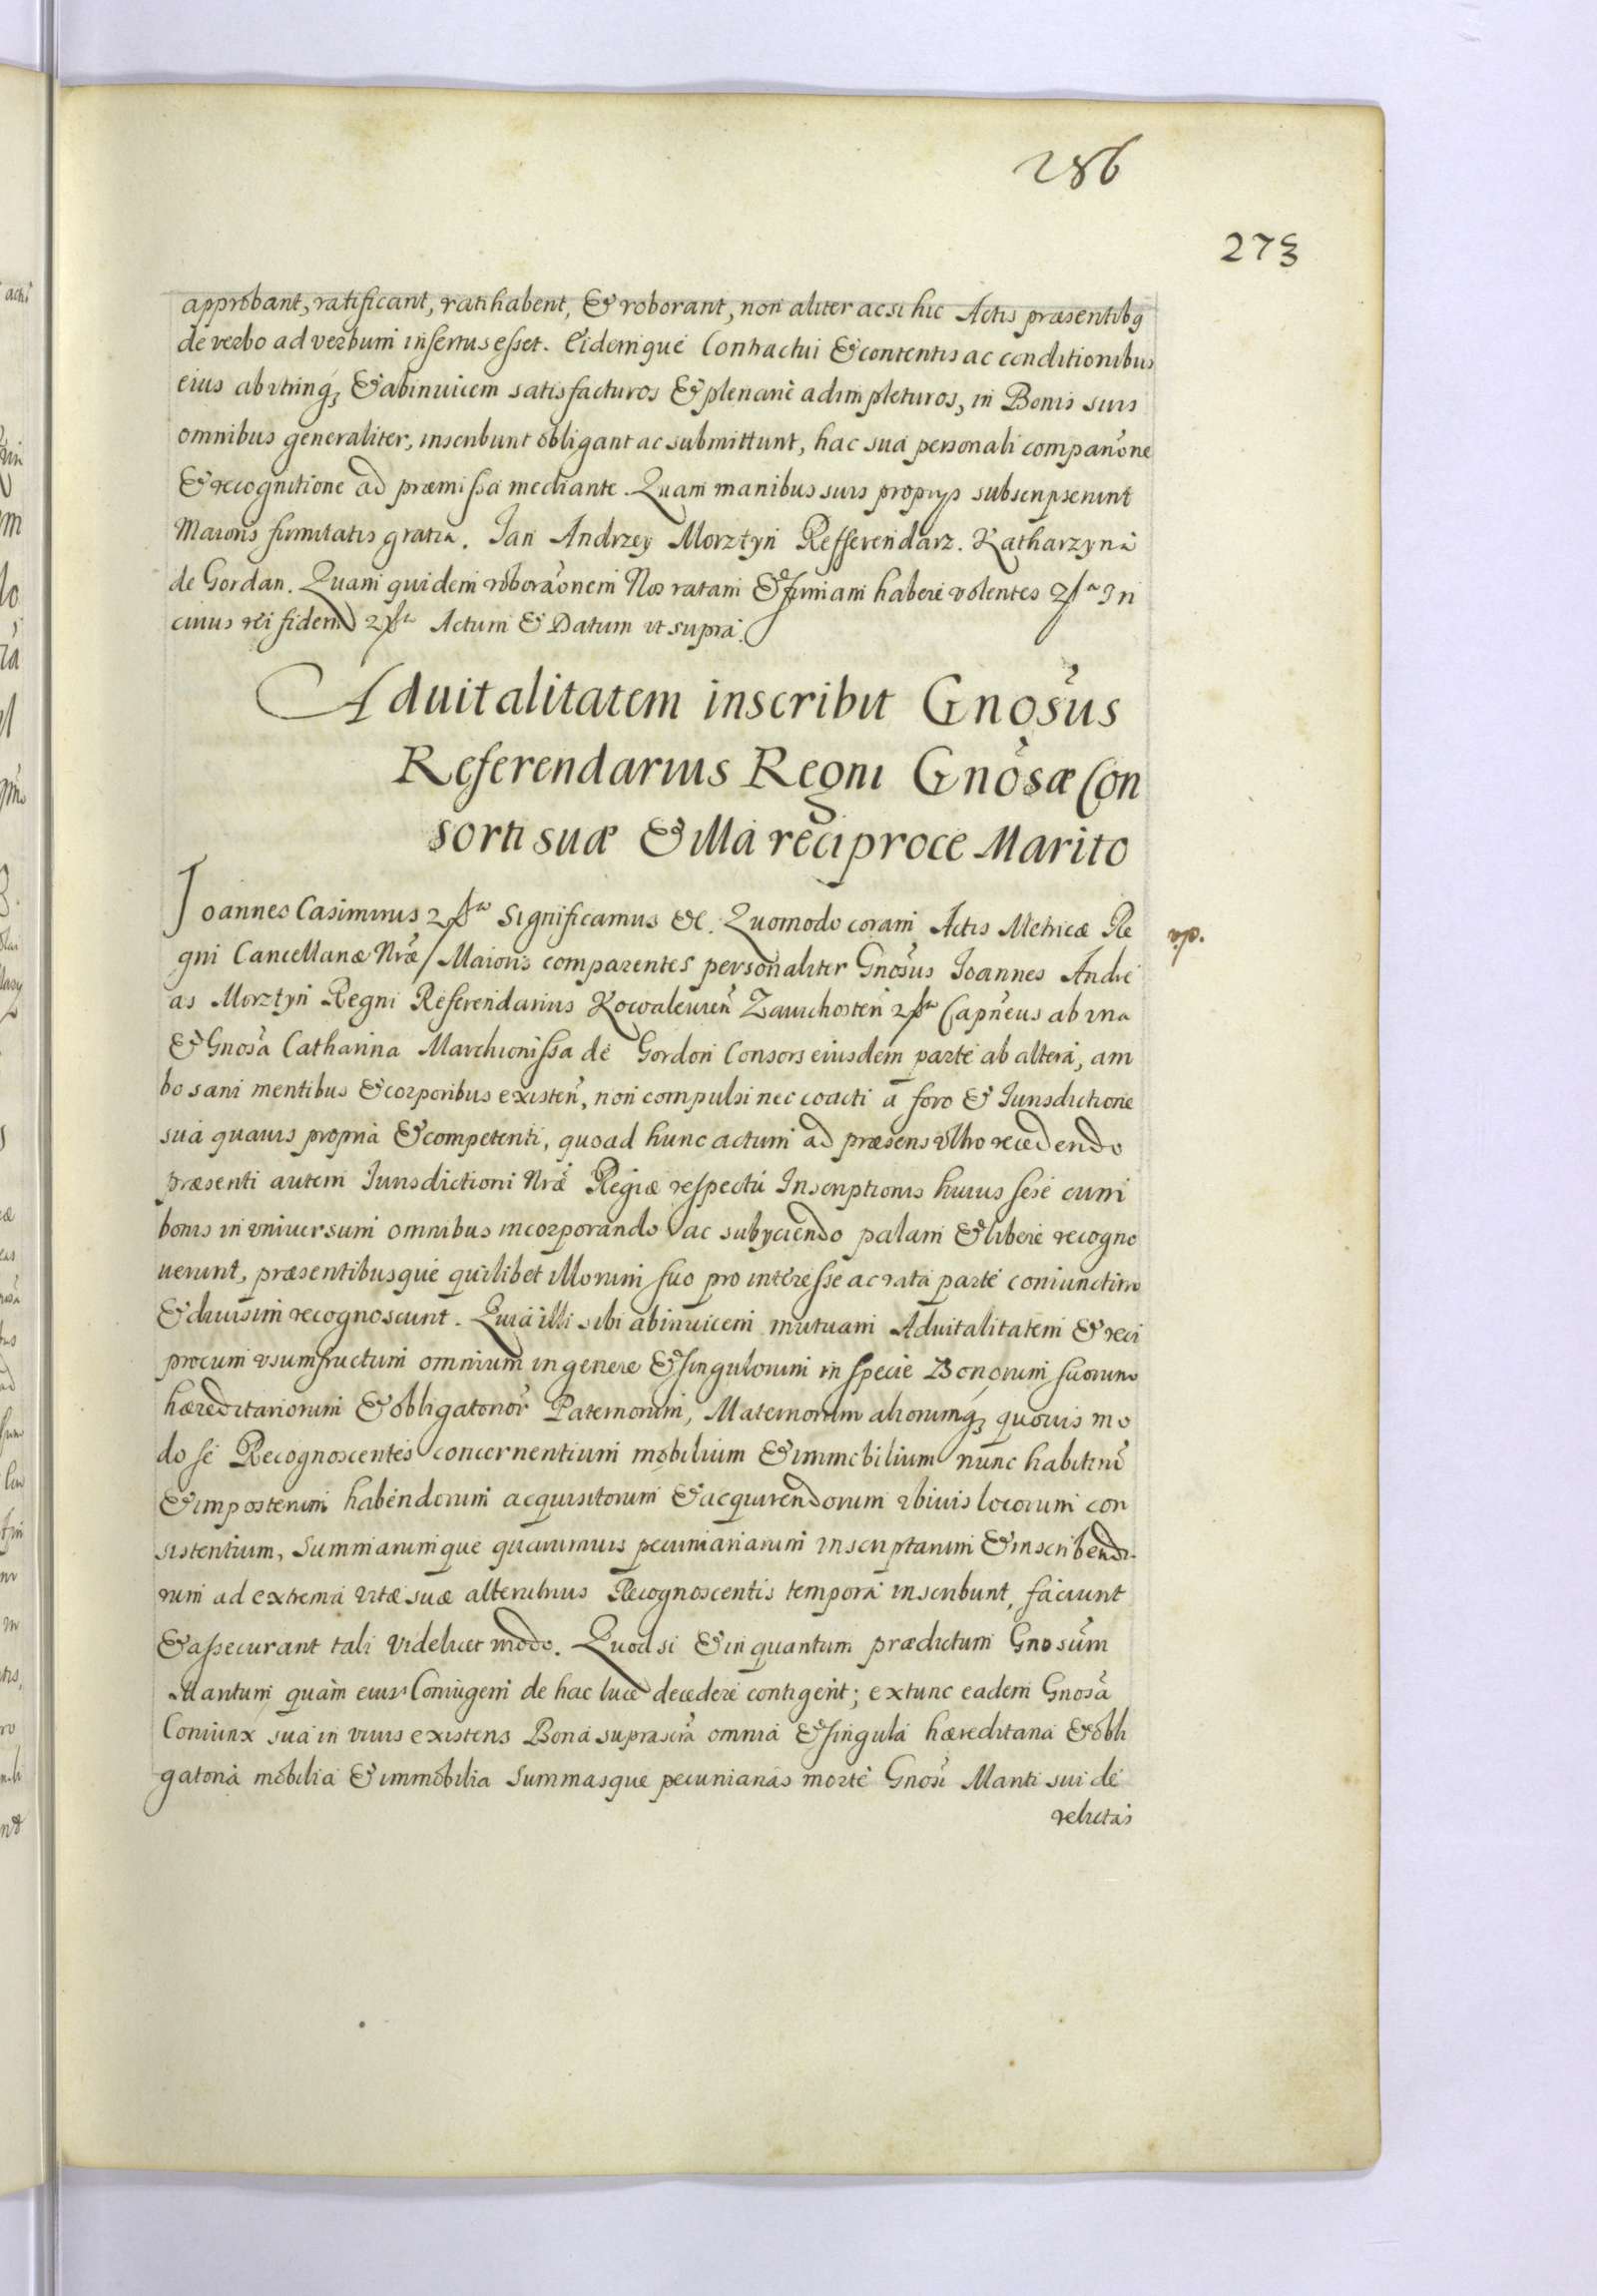 286
273
approbant, ratificant, ratihabent, & roborant, non aliter ac si hic Actis præsentibq
de verbo ad verbum insertus esset. Eidemque Contractui & contentis ac conditionibus
eius ab utrinq, & abinuicem satisfacturos & plenarie adimpleturos, in Bonis suis
omnibus generaliter, inscribunt obligant ac submittunt, hac sua personali comparone
& recognitione ad præmissa mediante. Quam manibus suis proprys subscripserunt
Maioris firmitatis gratia. Jan Andrzey Morztyn Refferendarz. Katharzyna
de Gordan. Quam quidem roboraonem Nos ratam & firmam habere volentes In
cuius rei fidem Actum & Datum ut supra.
Aduitalitatem inscribit Gnosus
Referendarius Regni Gnosæ Con
sorti suæ & illa reciproce Marito
Joannes Casimirus Significamus &c. Quomodo coram Actis Metricæ Re
gni Cancellariæ Nræ Maioris comparentes personaliter Gnosus Joannes Andre
as Morztyn Regni Referendarius Kowalewien Zawichosten Capneus ab una
& Gnosa Catharina Marchionissa de Gordon Consors eiusdem parte ab altera, am
bo sani mentibus & corporibus existen, non compulsi nec coacti a foro & Jurisdictione
sua quauis propria & competenti, quoad hunc actum ad præsens ultro recedendo
præsenti autem Jurisdictioni Nræ Regiæ respectu Inscriptionis huius sese cum
bonis in vniuersum omnibus incorporando ac subyciendo palam & libere recogno
uerunt, præsentibusque quilibet illorum suo pro interesse ac rata parte coniunctim
& diuisim recognoscunt. Quia illi sibi abinuicem mutuam Aduitalitatem & reci
procum vsumfructum omnium in genere & singulorum in specie Bonorum suorum
hæreditariorum & obligatorior Paternorum, Maternorum aliorumq, quouis mo
do se Recognoscentes concernentium mobilium & immobilium nunc habitru
& imposterum habendorum acquisitorum & acquirendorum vbiuis locorum con
sistentium, Summarumque quarumuis pecuniariarum inscriptarum & inscribenda
rum ad extrema vitæ suæ alterutrius Recognoscentis tempora inscribunt, faciunt
& assecurant tali videlicet modo. Quod si & in quantum prædictum Gnosum
Maritum quam eius Coniugem de hac luce decedere contigerit; extunc eadem Gnosa
Coniunx sua in viuis existens Bona suprascra omnia & singula hæreditaria & obli
gatoria mobilia & immobilia Summasque pecuniarias morte Gnosi Mariti sui de
relictas